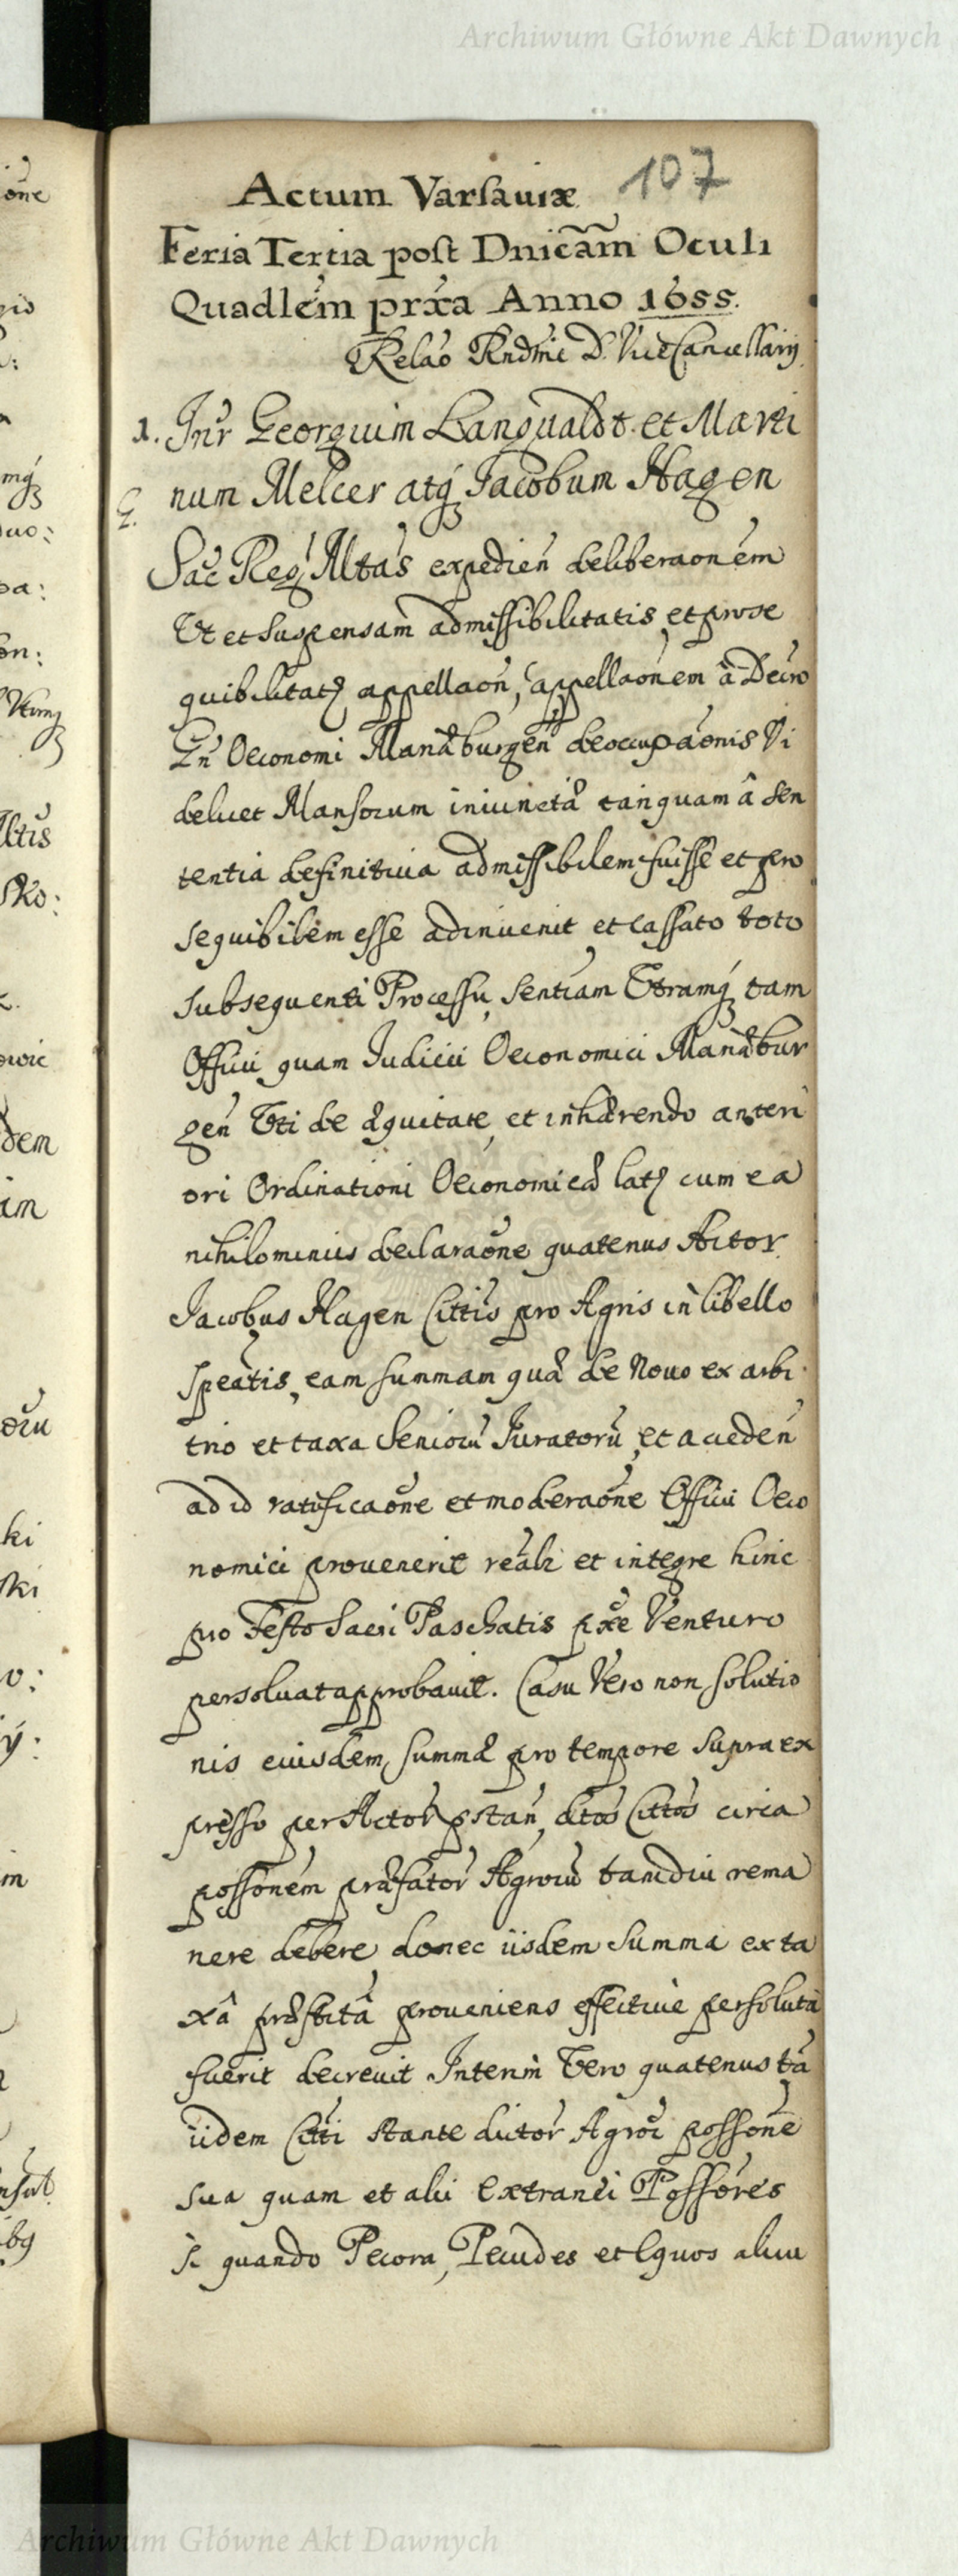 Archiwum Główne Akt Dawnych
107
Actum Varsauiæ
Feria Tertia post Dnicãm Oculi
Quadlem prxa Anno 1655.
Relao Rndmi D. ViceCancellarij.
1. Inr Georgium Langualdt et Marti
num Melcer atq Jacobum Hagen
Sac Reg Mltas expedien deliberaonem
Vt et suspensam admissibilitatis, et prose
quibilitatis appellaon, appellaonem â Decro
Gn Oeconomi Mariæburgen deoccupaonis Vi
deluet Mansorum iniunctæ tanquam â Sen
tentia definitiua admissibilem fuisse et pro
sequibilem esse adinuenit et cassato toto
subsequenti Processu, Sentiam Vtramq tam
Officii quam Judicii Oeconomici Mariæbur
gen Vti de æquitate, et inhærendo anteri
ori Ordinationi Oeconomicæ latis cum ea
nihilominus declaraone quatenus Actor
Jacobus Hagen Cittis pro Agris in libello
specatis, eam summam quæ de Nouo ex arbi
trio et taxa Seniorū Juratorū, et acceden
ad id ratificaone et moderaone Officii Oeco
nomici prouenerit realr et integre hinc
pro Festo Sacri Paschatis pxe Venturo
persoluat approbauit. Casu Vero non solutio
nis eiusdem summæ pro tempore supra ex
presso per Actor pstan, dtos Cittos circa
possonem præfator Agrorū tamdiu rema
nere debere, donec iisdem Summa ex ta
xâ præstitâ proueniens effectiuè persoluta
fuerit decreuit Interim Vero quatenus tā
iidem Citti stante dictor Agror possone
sua quam et alii Extranei Possores
si quando Pecora, Pecudes et Equos aliui
Archiwum Główne Akt Dawnych